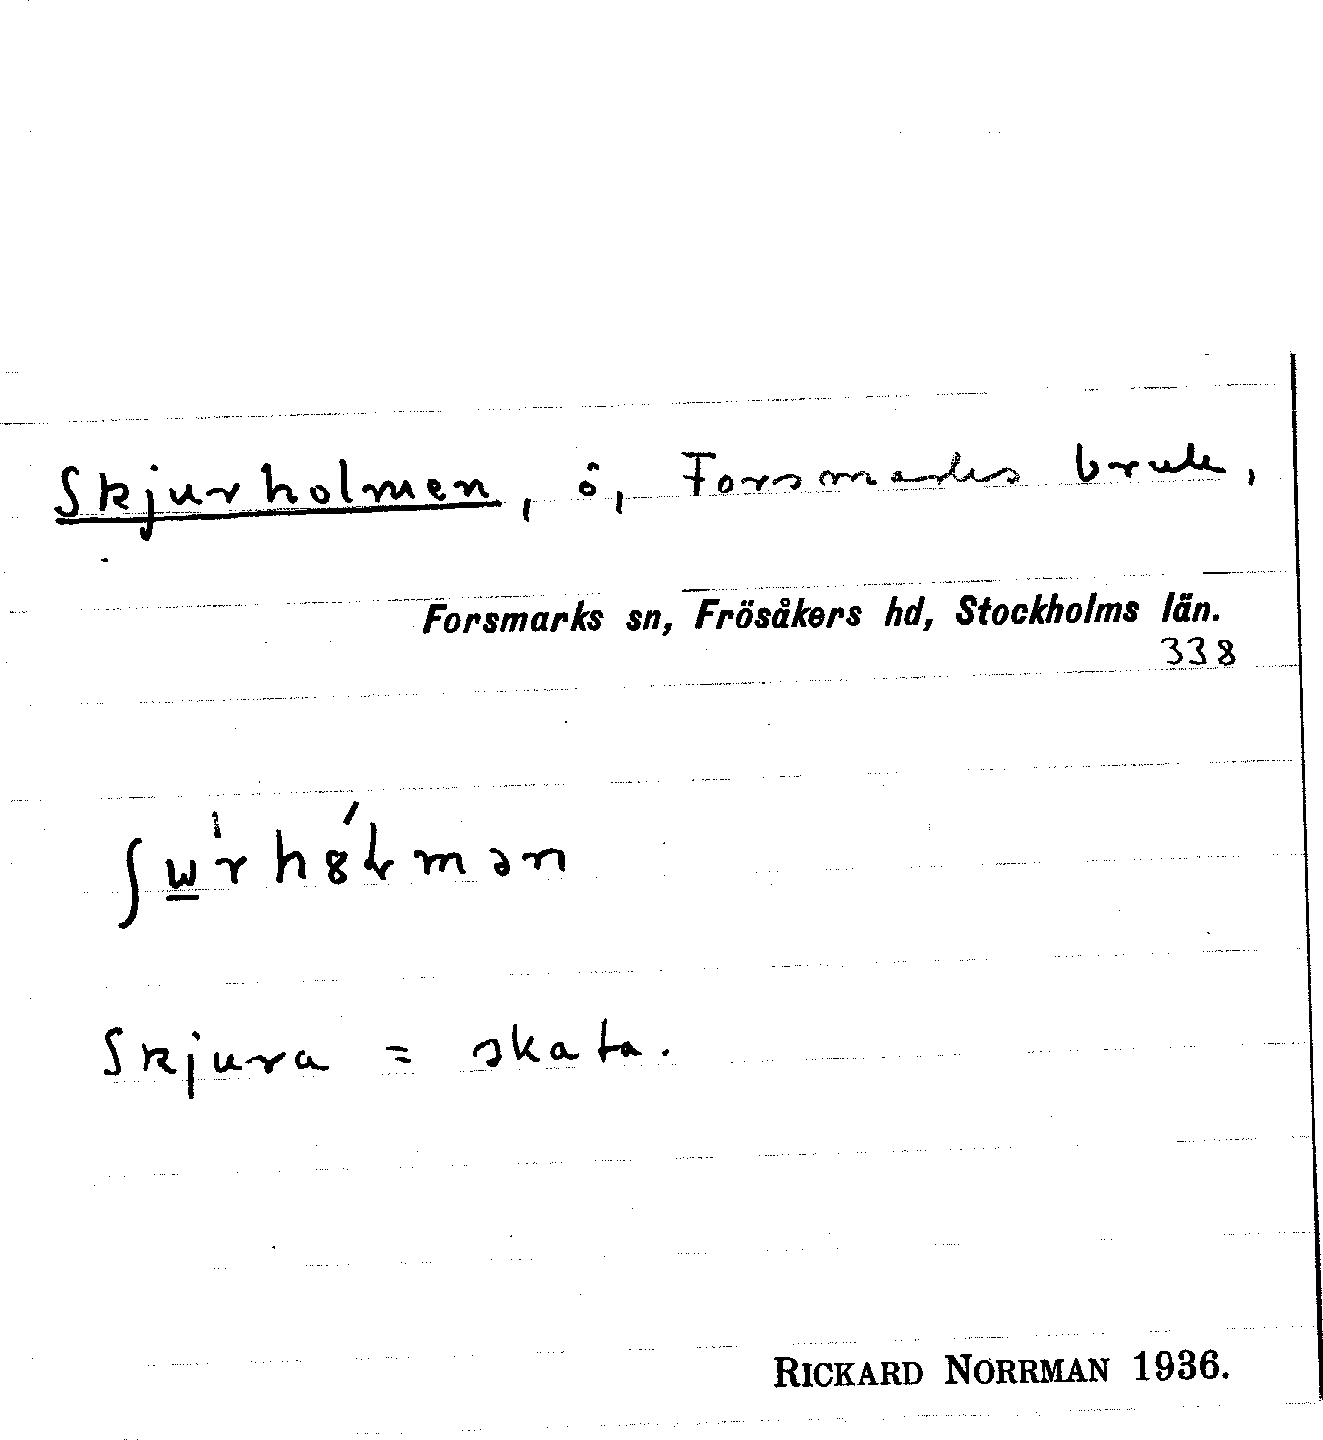 Skjurholmen, ö, Forsmarks bruk,
Forsmarks sn, Frösåkers hd, Stockholms län.
338
Skjura = skata.
RICKARD NORRMAN 1936.